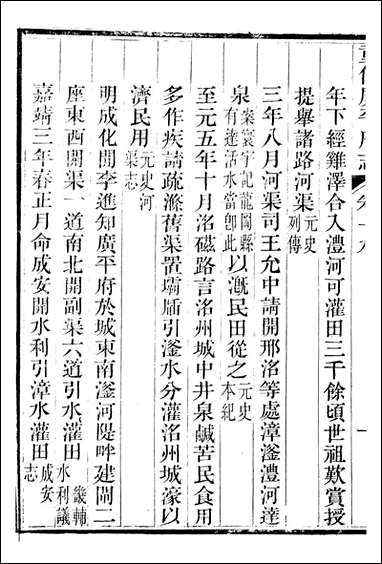 重修廣平府志
年下經雞澤合入澧河可灌田三千餘頃世祖歎賞授
提舉諸路河渠元史列傳
三年八月河渠司王允中請開邢洺等處漳滏澧河達
泉案寰宇記龍岡縣有達活水當卽此以漑民田從之元史本紀
至元五年十月洺磁路言洺州城中井泉鹹苦民食用
多作疾請疏滌舊渠置壩牐引滏水分灌洺州城濠以
濟民用元史河渠志
明成化閒李進知廣平府於城東南滏河隄畔建閘二
座東西開渠一道南北開副渠六道引水灌田畿輔水利議
嘉靖三年春正月命成安開水利引漳水灌田成安志